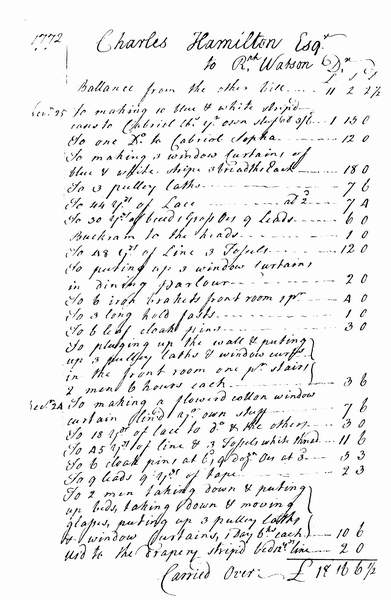 1772 Charles Hamilton Esqr
to Rd Watson Dr
£ s d
Ballance from the other side 11 2 2½
To making 10 blue & white strip'd
cases to Cabriol own stuf at 3/6 1 15 0
To one Do to Cabriol Sopha 12 0
To making 3 window Curtains of
blue & white stripe 3 breadths Each 18 0
To 3 pulley laths 7 6
To 44 yds of Lace at 2d 7 4
To 30 yds of Grass Oes & Leads 6 0
Buckram to the heads 1 0
To 48 yds of Line 3 Tossels 12 0
To puting up 3 window curtains
in dining parlour 2 0
To 6 iron brakets front room 4 0
To 3 long hold fasts 1 0
To 6 leaf cloak pins 3 0
To pluging up the wall & puting
up 3 pulley laths & window curts
in the front room one pr stairs
2 men 6 hours each 3 6
24 To making a flowerd cotton window
curtain lin'd yr own stuff 7 6
To 18 yds of lace to Do & the others 3 0
To 45 yds of line & 3 Tossels white thread 11 6
To 6 cloak pins at 6d, 9 dozn Oes at 3d 3 3
To 9 leads 9 yds of tape 2 3
To 2 men taking down & puting
up beds, taking down & moving
glasses, puting up 3 pulley laths
& window Curtains, 1 day each 10 6
us'd to the drapery strip'd line 2 0
Carried Over £ 18 16 6½